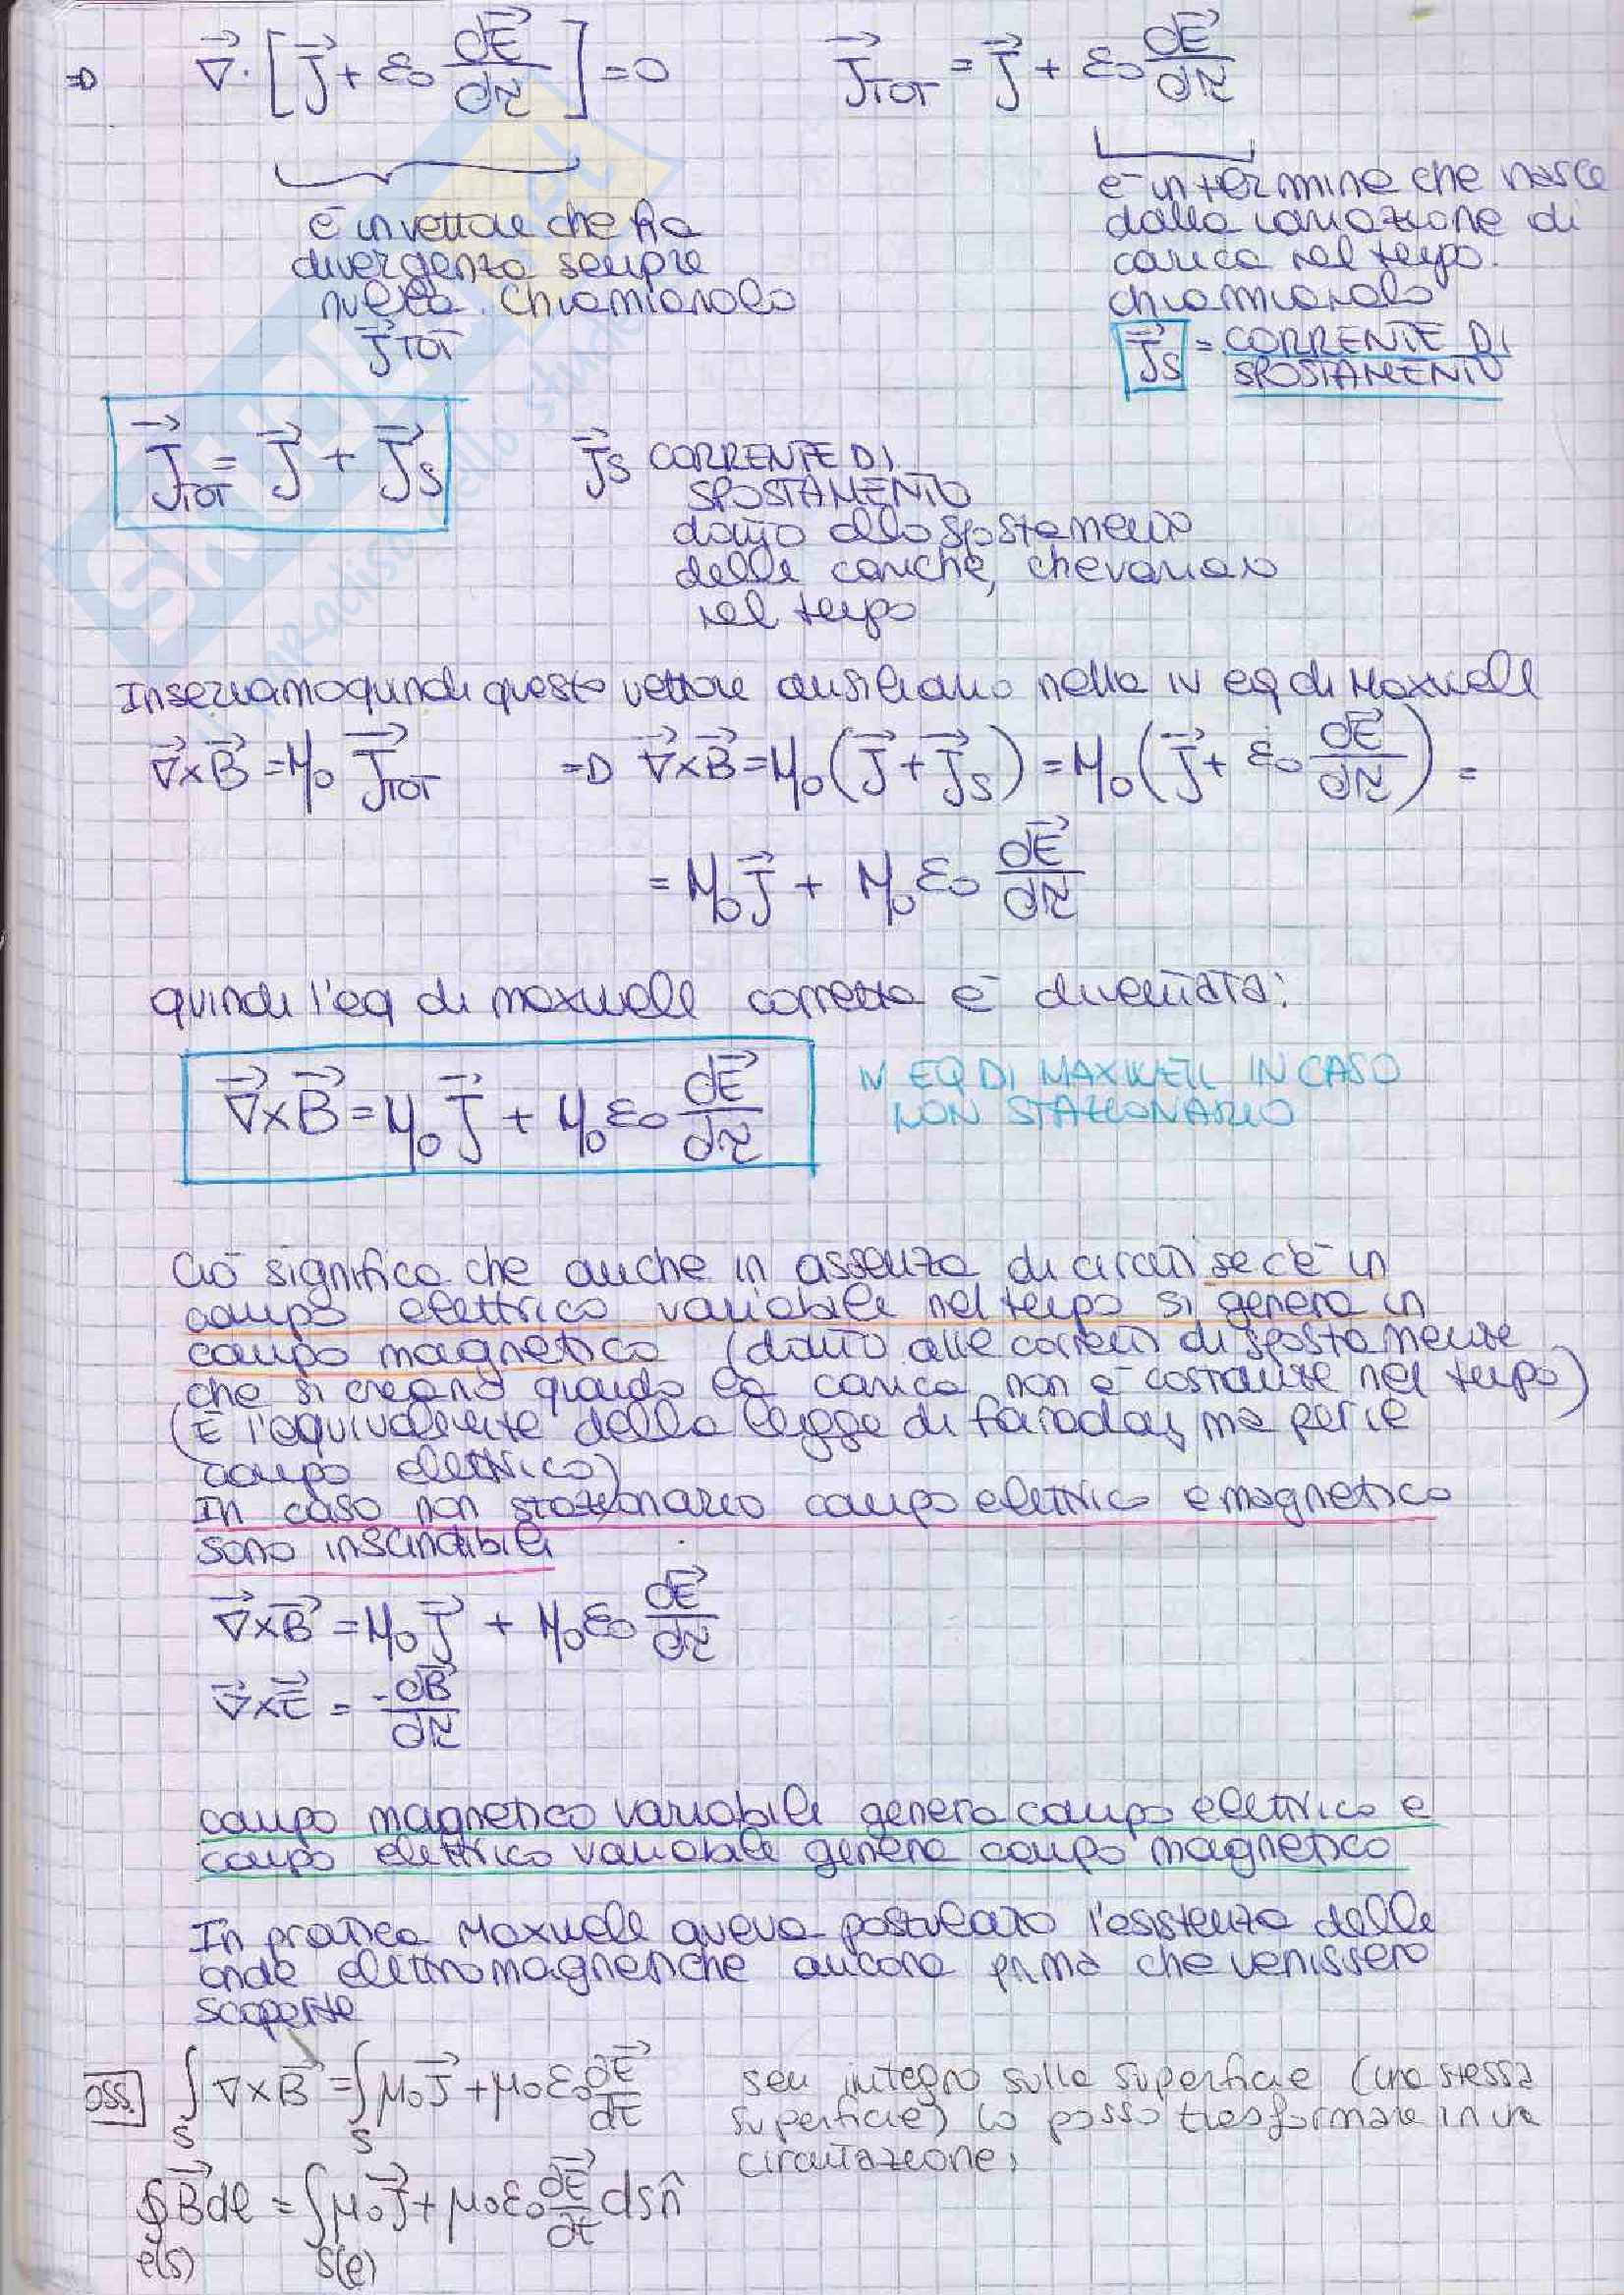 =D ∇⃗·[J⃗ + ε₀ dE⃗/dτ] = 0    J⃗TOT = J⃗ + ε₀ dE⃗/dτ
è un vettore che ha
divergenza sempre
nulla. Chiamiamolo
J⃗TOT
è un termine che nasce
dalla variazione di
carica nel tempo.
chiamiamolo
J⃗s = CORRENTE DI
SPOSTAMENTO
J⃗TOT = J⃗ + J⃗s
J⃗s CORRENTE DI
SPOSTAMENTO
dovuto allo spostamento
delle cariche, che variano
nel tempo
Inseriamo quindi questo vettore ausiliario nella IV eq di Maxwell
∇⃗×B⃗ = μ₀ J⃗TOT    =D ∇⃗×B⃗ = μ₀(J⃗ + J⃗s) = μ₀(J⃗ + ε₀ dE⃗/dτ) =
= μ₀J⃗ + μ₀ε₀ dE⃗/dτ
quindi l'eq di maxwell corretta è diventata:
∇⃗×B⃗ = μ₀J⃗ + μ₀ε₀ dE⃗/dτ    IV EQ DI MAXWELL IN CASO
NON STAZIONARIO
Ciò significa che anche in assenza di circuiti se c'è un
campo elettrico variabile nel tempo si genera un
campo magnetico (dovuto alle correnti di spostamento
che si creano quando la carica non è costante nel tempo)
(È l'equivalente della legge di Faraday, ma per il
campo elettrico)
In caso non stazionario campo elettrico e magnetico
sono inscindibili
∇⃗×B⃗ = μ₀J⃗ + μ₀ε₀ dE⃗/dτ
∇⃗×E⃗ = -dB⃗/dτ
campo magnetico variabile genera campo elettrico e
campo elettrico variabile genera campo magnetico
In pratica Maxwell aveva postulato l'esistenza delle
onde elettromagnetiche ancora prima che venissero
scoperte
OSS. ∫S ∇×B⃗ = ∫S μ₀J⃗ + μ₀ε₀ ∂E⃗/∂t    se li integro sulla superficie (una stessa
superficie) lo posso trasformare in una
circuitazione,
∮ℓ(S) B⃗dℓ = ∫S(ℓ) μ₀J⃗ + μ₀ε₀ ∂E⃗/∂t dS n̂